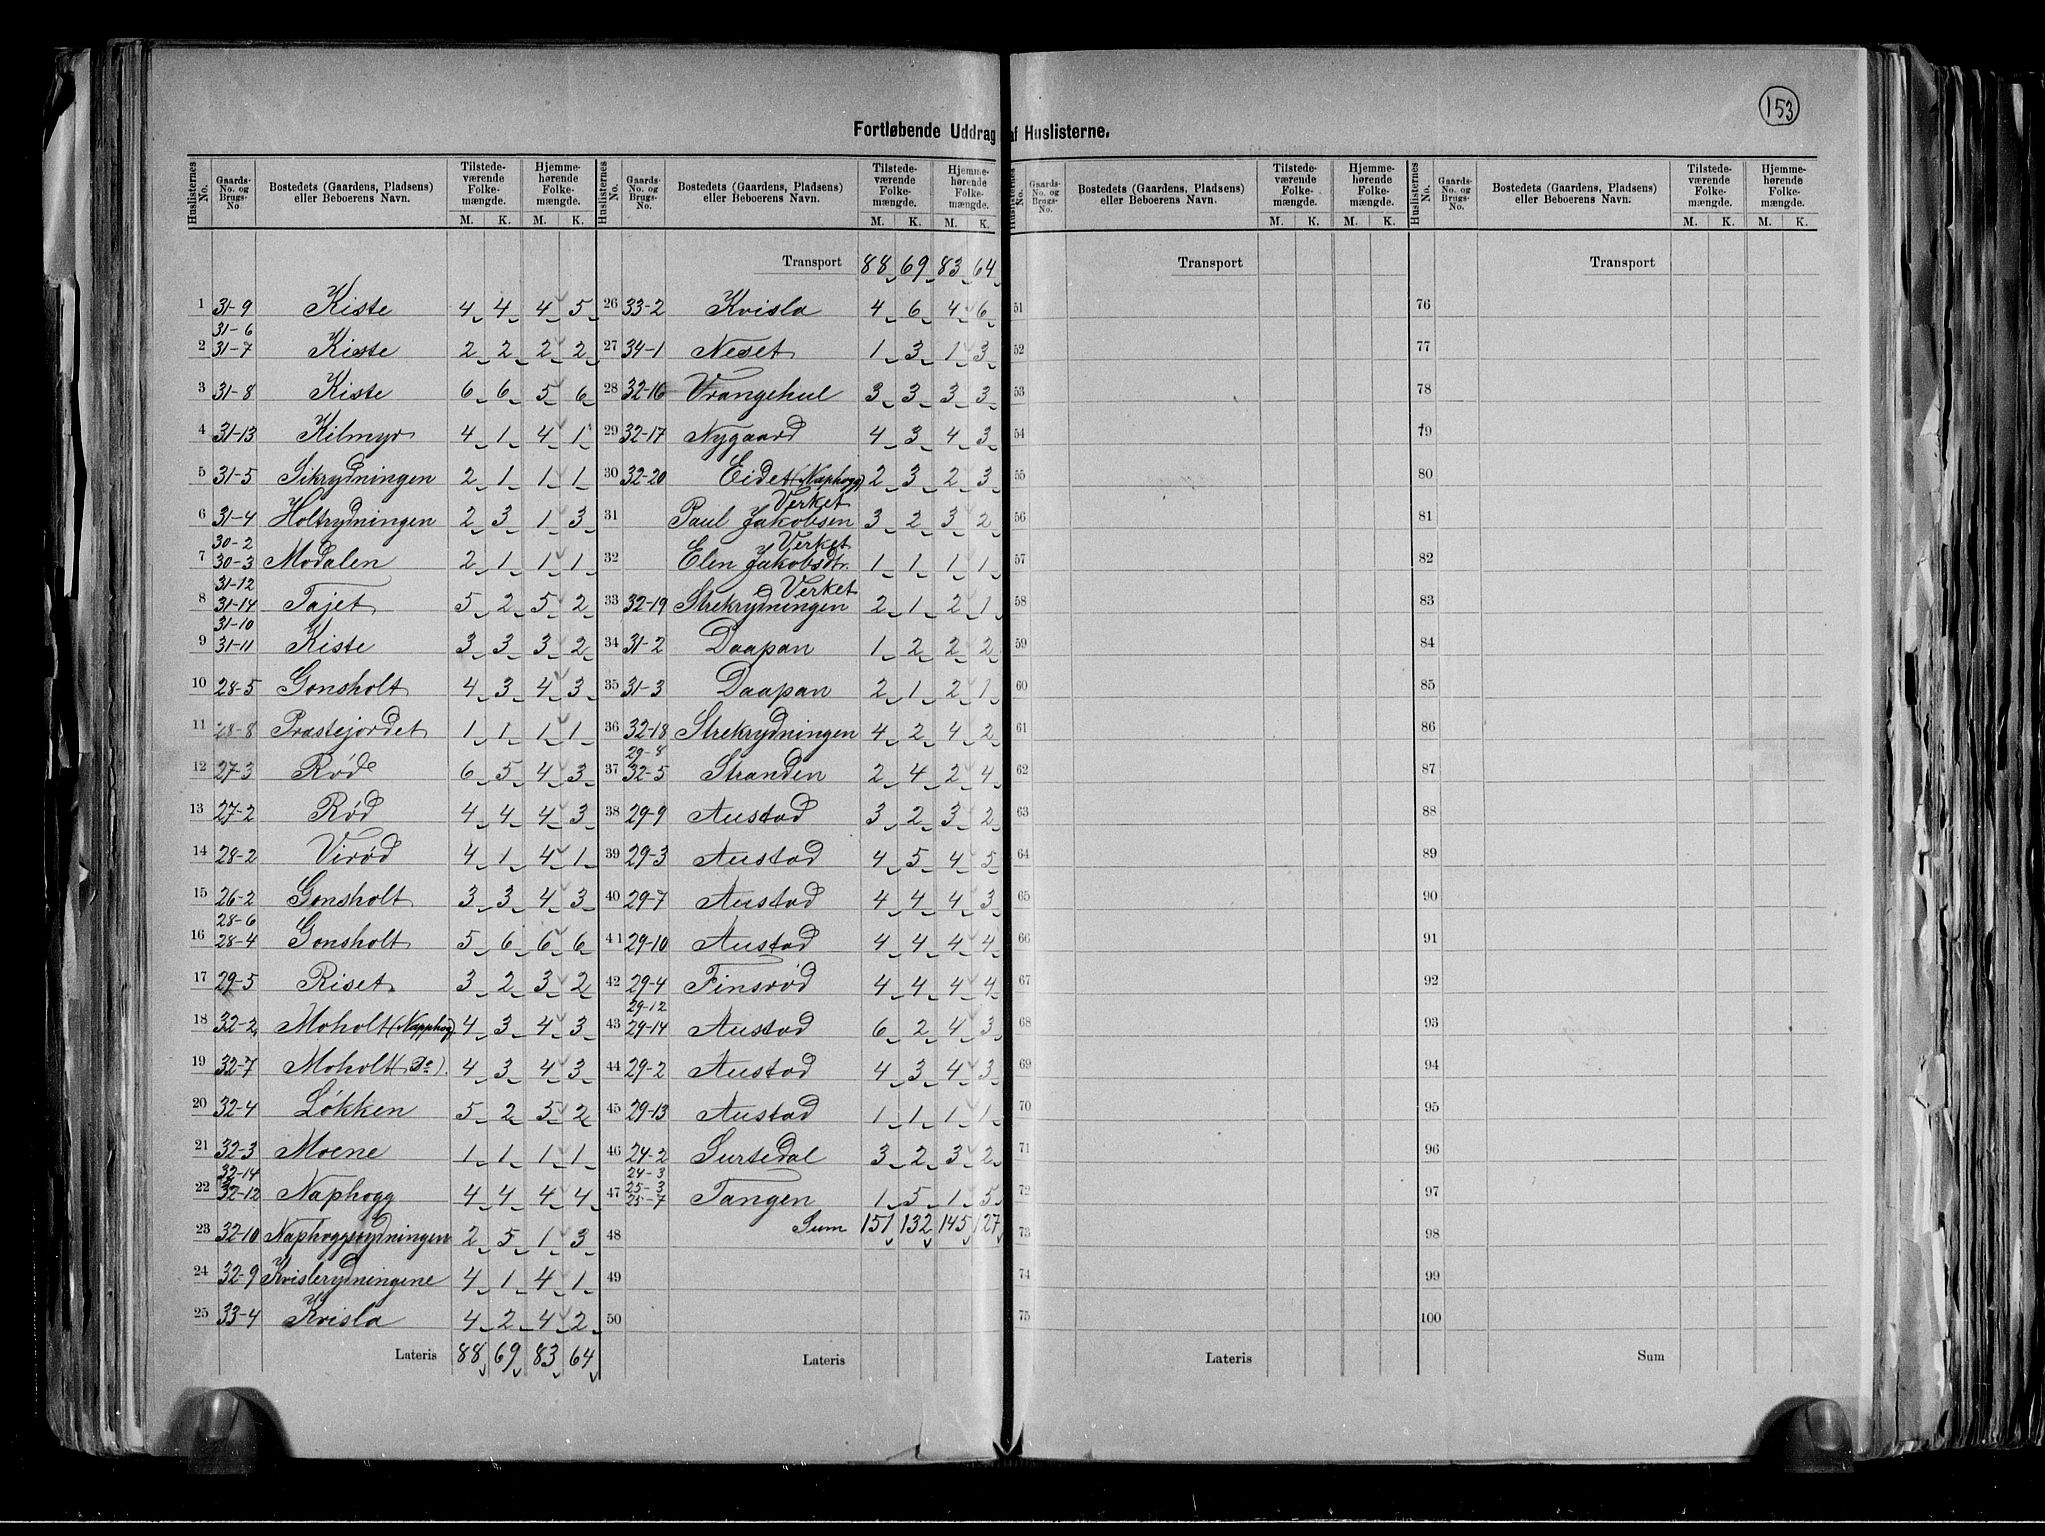 153
Fortløbende Uddrag af Huslisterne.
Huslisternes No. | Gaards-No. og Brugs-No. | Bostedets (Gaardens, Pladsens) eller Beboerens Navn. | Tilstede-værende Folke-mængde. M. K. | Hjemme-hørende Folke-mængde. M. K.
1 31-9 Kiste 4 4 4 5
2 31-6 31-7 Kiste 2 2 2 2
3 31-8 Kiste 6 6 5 6
4 31-13 Kilmyr 4 1 4 1
5 31-5 Sikrydningen 2 1 1 1
6 31-4 Holtrydningen 2 3 1 3
7 30-2 30-3 Modalen 2 1 1 1
8 31-12 31-14 Tajet 5 2 5 2
9 31-10 31-11 Kiste 3 3 3 2
10 28-5 Gonsholt 4 3 4 3
11 28-8 Præstejordet 1 1 1 1
12 27-3 Rød 6 5 4 3
13 27-2 Rød 4 4 4 3
14 28-2 Virød 4 1 4 1
15 26-2 Gonsholt 3 3 4 3
16 28-6 28-4 Gonsholt 5 6 6 6
17 29-5 Riset 3 2 3 2
18 32-2 Moholt (Napphog) 4 3 4 3
19 32-7 Moholt (Do) 4 3 4 3
20 32-4 Løkken 5 2 5 2
21 32-3 Moene 1 1 1 1
22 32-14 32-12 Naphogg 4 4 4 4
23 32-10 Naphoggrydningen 2 5 1 3
24 32-9 Kvislerydningene 4 1 4 1
25 33-4 Kvisla 4 2 4 2
Lateris 88 69 83 64
Huslisternes No. | Gaards-No. og Brugs-No. | Bostedets (Gaardens, Pladsens) eller Beboerens Navn. | Tilstede-værende Folke-mængde. M. K. | Hjemme-hørende Folke-mængde. M. K.
Transport 88 69 83 64
26 33-2 Kvisla 4 6 4 6
27 34-1 Neset 1 3 1 3
28 32-16 Vrangehul 3 3 3 3
29 32-17 Nygaard 4 3 4 3
30 32-20 Eidet (Naphogg) 2 3 2 3
Verket
31 Paul Jakobsen 3 2 3 2
Verket
32 Elen Jakobsdtr. 1 1 1 1
Verket
33 32-19 Strekrydningen 2 1 2 1
34 31-2 Daapan 1 2 2 2
35 31-3 Daapan 2 1 2 1
36 32-18 Strekrydningen 4 2 4 2
37 29-8 32-5 Stranden 2 4 2 4
38 29-9 Austad 3 2 3 2
39 29-3 Austad 4 5 4 5
40 29-7 Austad 4 4 4 3
41 29-10 Austad 4 4 4 4
42 29-4 Finsrød 4 4 4 4
43 29-12 29-14 Austad 6 2 4 3
44 29-2 Austad 4 3 4 3
45 29-13 Austad 1 1 1 1
46 24-2 Surtedal 3 2 3 2
47 24-3 25-3 25-7 Tangen 1 5 1 5
48 Sum 151 132 145 127
49
50
Lateris
Huslisternes No. | Gaards-No. og Brugs-No. | Bostedets (Gaardens, Pladsens) eller Beboerens Navn. | Tilstede-værende Folke-mængde. M. K. | Hjemme-hørende Folke-mængde. M. K.
Transport
51
52
53
54
55
56
57
58
59
60
61
62
63
64
65
66
67
68
69
70
71
72
73
74
75
Lateris
Huslisternes No. | Gaards-No. og Brugs-No. | Bostedets (Gaardens, Pladsens) eller Beboerens Navn. | Tilstede-værende Folke-mængde. M. K. | Hjemme-hørende Folke-mængde. M. K.
Transport
76
77
78
79
80
81
82
83
84
85
86
87
88
89
90
91
92
93
94
95
96
97
98
99
100
Sum